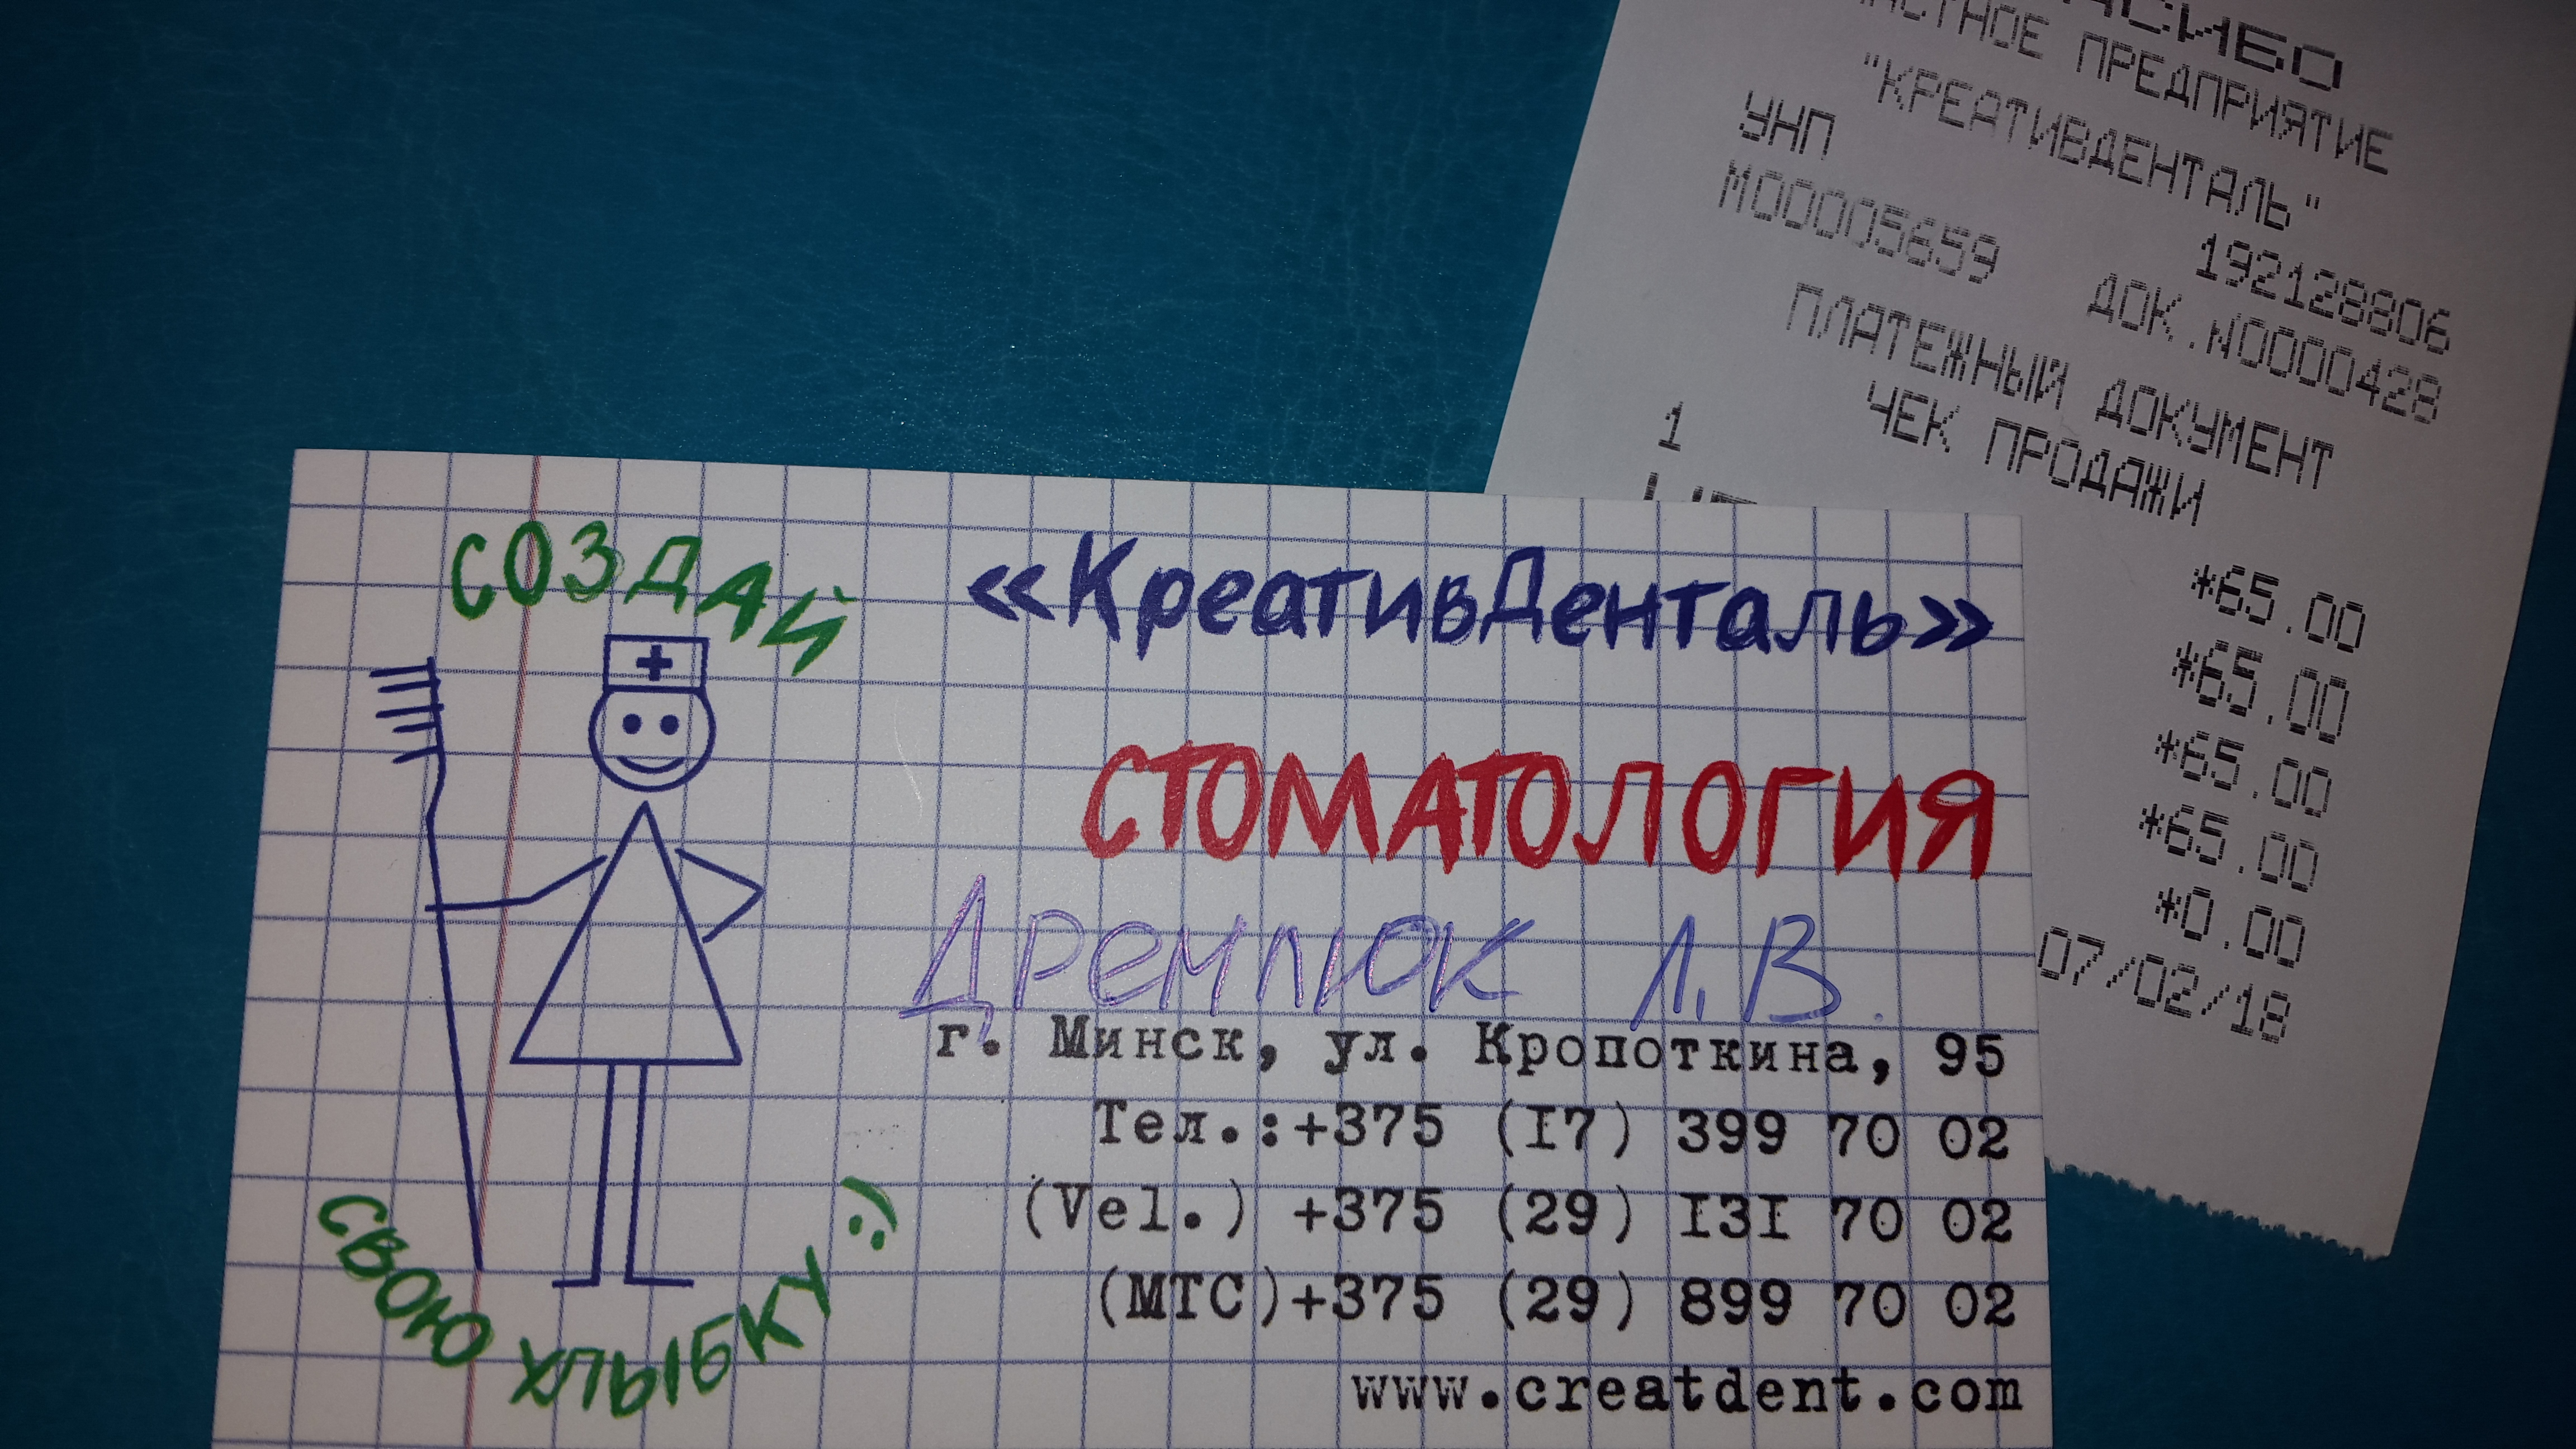 ЧАСТНОЕ ПРЕДПРИЯТИЕ
"КРЕАТИВДЕНТАЛЬ"
УНП 192128806
М00005659 ДОК.N0000428
ПЛАТЕЖНЫЙ ДОКУМЕНТ
ЧЕК ПРОДАЖИ
1 *65.00
*65.00
*65.00
*65.00
*0.00
07/02/18
СОЗДАЙ
СВОЮ УЛЫБКУ :)
«КреативДенталь»
СТОМАТОЛОГИЯ
Дремлюк Л.В.
г. Минск, ул. Кропоткина, 95
Тел.:+375 (I7) 399 70 02
(Vel.) +375 (29) I3I 70 02
(МТС)+375 (29) 899 70 02
www.creatdent.com